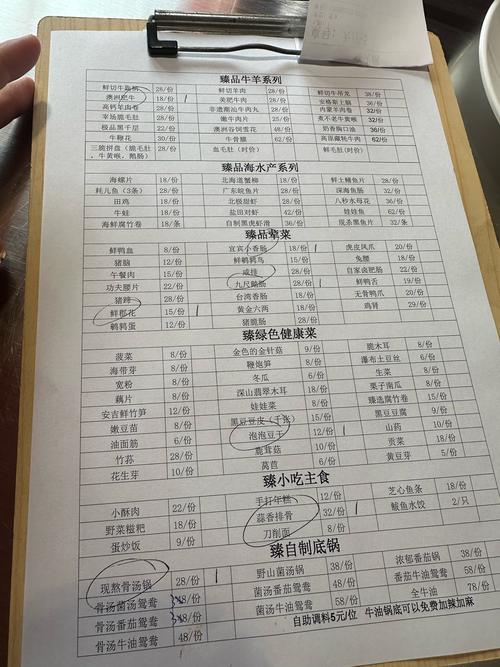 臻品牛羊系列
鲜切牛脂桃 28/份 鲜切羊肉 28/份 鲜切牛吊龙 38/份
澳洲肥牛 18/份 1 美肥牛肉 28/份 安格斯上脑 36/份
高钙羊肉卷 28/份 非遗潮汕牛肉丸 28/份 内蒙羊肉卷 32/份
宰场脆毛肚 28/份 嫩牛肉片 25/份 煮不老牛黄喉 32/份
极品黑千层 22/份 澳洲谷饲雪花 48/份 奶香胸口油 36/份
牛鞭花 30/份 牛骨髓 62/份 高原藏牦牛肉 62/份
三脆拼盘(脆毛肚,牛黄喉,鹅肠) 28/份 血毛肚(时价) 鲜毛肚(时价)
臻品海水产系列
海螺片 18/份 北海道蟹柳 18/份 鲜土鳝鱼片 28/份
耗儿鱼(3条) 28/份 广东皖鱼片 28/份 深海鱼肠 32/份
田鸡 18/份 北极甜虾 28/份 八秒水母花 36/份
牛蛙 18/份 盐田对虾 42/份 娃娃鱼 62/份
海鲜腐竹卷 18/条 自制黑虎虾滑 36/份 现杀黑鱼片 32/条
臻品荤菜
鲜鸭血 8/份 宜宾小香肠 18/份 1 虎皮凤爪 20/份
猪脑 12/份 鲜鹌鹑鸟 15/份 兔腰 18/份
午餐肉 15/份 咸排 28/份 1 自家卤肥肠 22/份
功夫腰片 22/份 九尺鹅肠 28/份 1 鲜鸭舌 19/份
猪蹄 28/份 台湾香肠 18/份 无骨鸭爪 20/份
鲜郡花 15/份 1 黄金六两 18/份 鸡肾 29/份
鹌鹑蛋 12/份 猪脆肠 28/份
臻绿色健康菜
菠菜 8/份 金色的金针菇 9/份 脆木耳 8/份
海带芽 8/份 鞭炮笋 8/份 瀑布土豆丝 6/份
宽粉 8/份 冬瓜 6/份 生菜 8/份
藕片 8/份 深山翡翠木耳 18/份 栗子南瓜 8/份
安吉鲜竹笋 12/份 娃娃菜 8/份 臻选腐竹卷 15/份
嫩豆苗 8/份 黑豆豆皮(千张) 15/份 黑豆豆腐 9/份
油面筋 6/份 泡泡豆干 12/份 1 山药 10/份
竹荪 28/份 鹿茸菇 15/份 贡菜 18/份
花生芽 10/份 莴苣 6/份 黄豆芽 5/份
臻小吃主食
小酥肉 22/份 手打年糕 12/份 芝心鱼条 18/份
野菜糍粑 18/份 蒜香排骨 32/份 1 鲅鱼水饺 2/只
蛋炒饭 9/份 刀削面 8/份
臻自制底锅
现熬骨汤锅 28/份 1 野山菌汤锅 38/份 浓郁番茄锅 38/份
骨汤菌汤鸳鸯 38/份 菌汤番茄鸳鸯 48/份 番茄牛油鸳鸯 58/份
骨汤番茄鸳鸯 38/份 菌汤牛油鸳鸯 58/份 全牛油 78/份
骨汤牛油鸳鸯 48/份 自助调料5元/位 牛油锅底可以免费加辣加麻